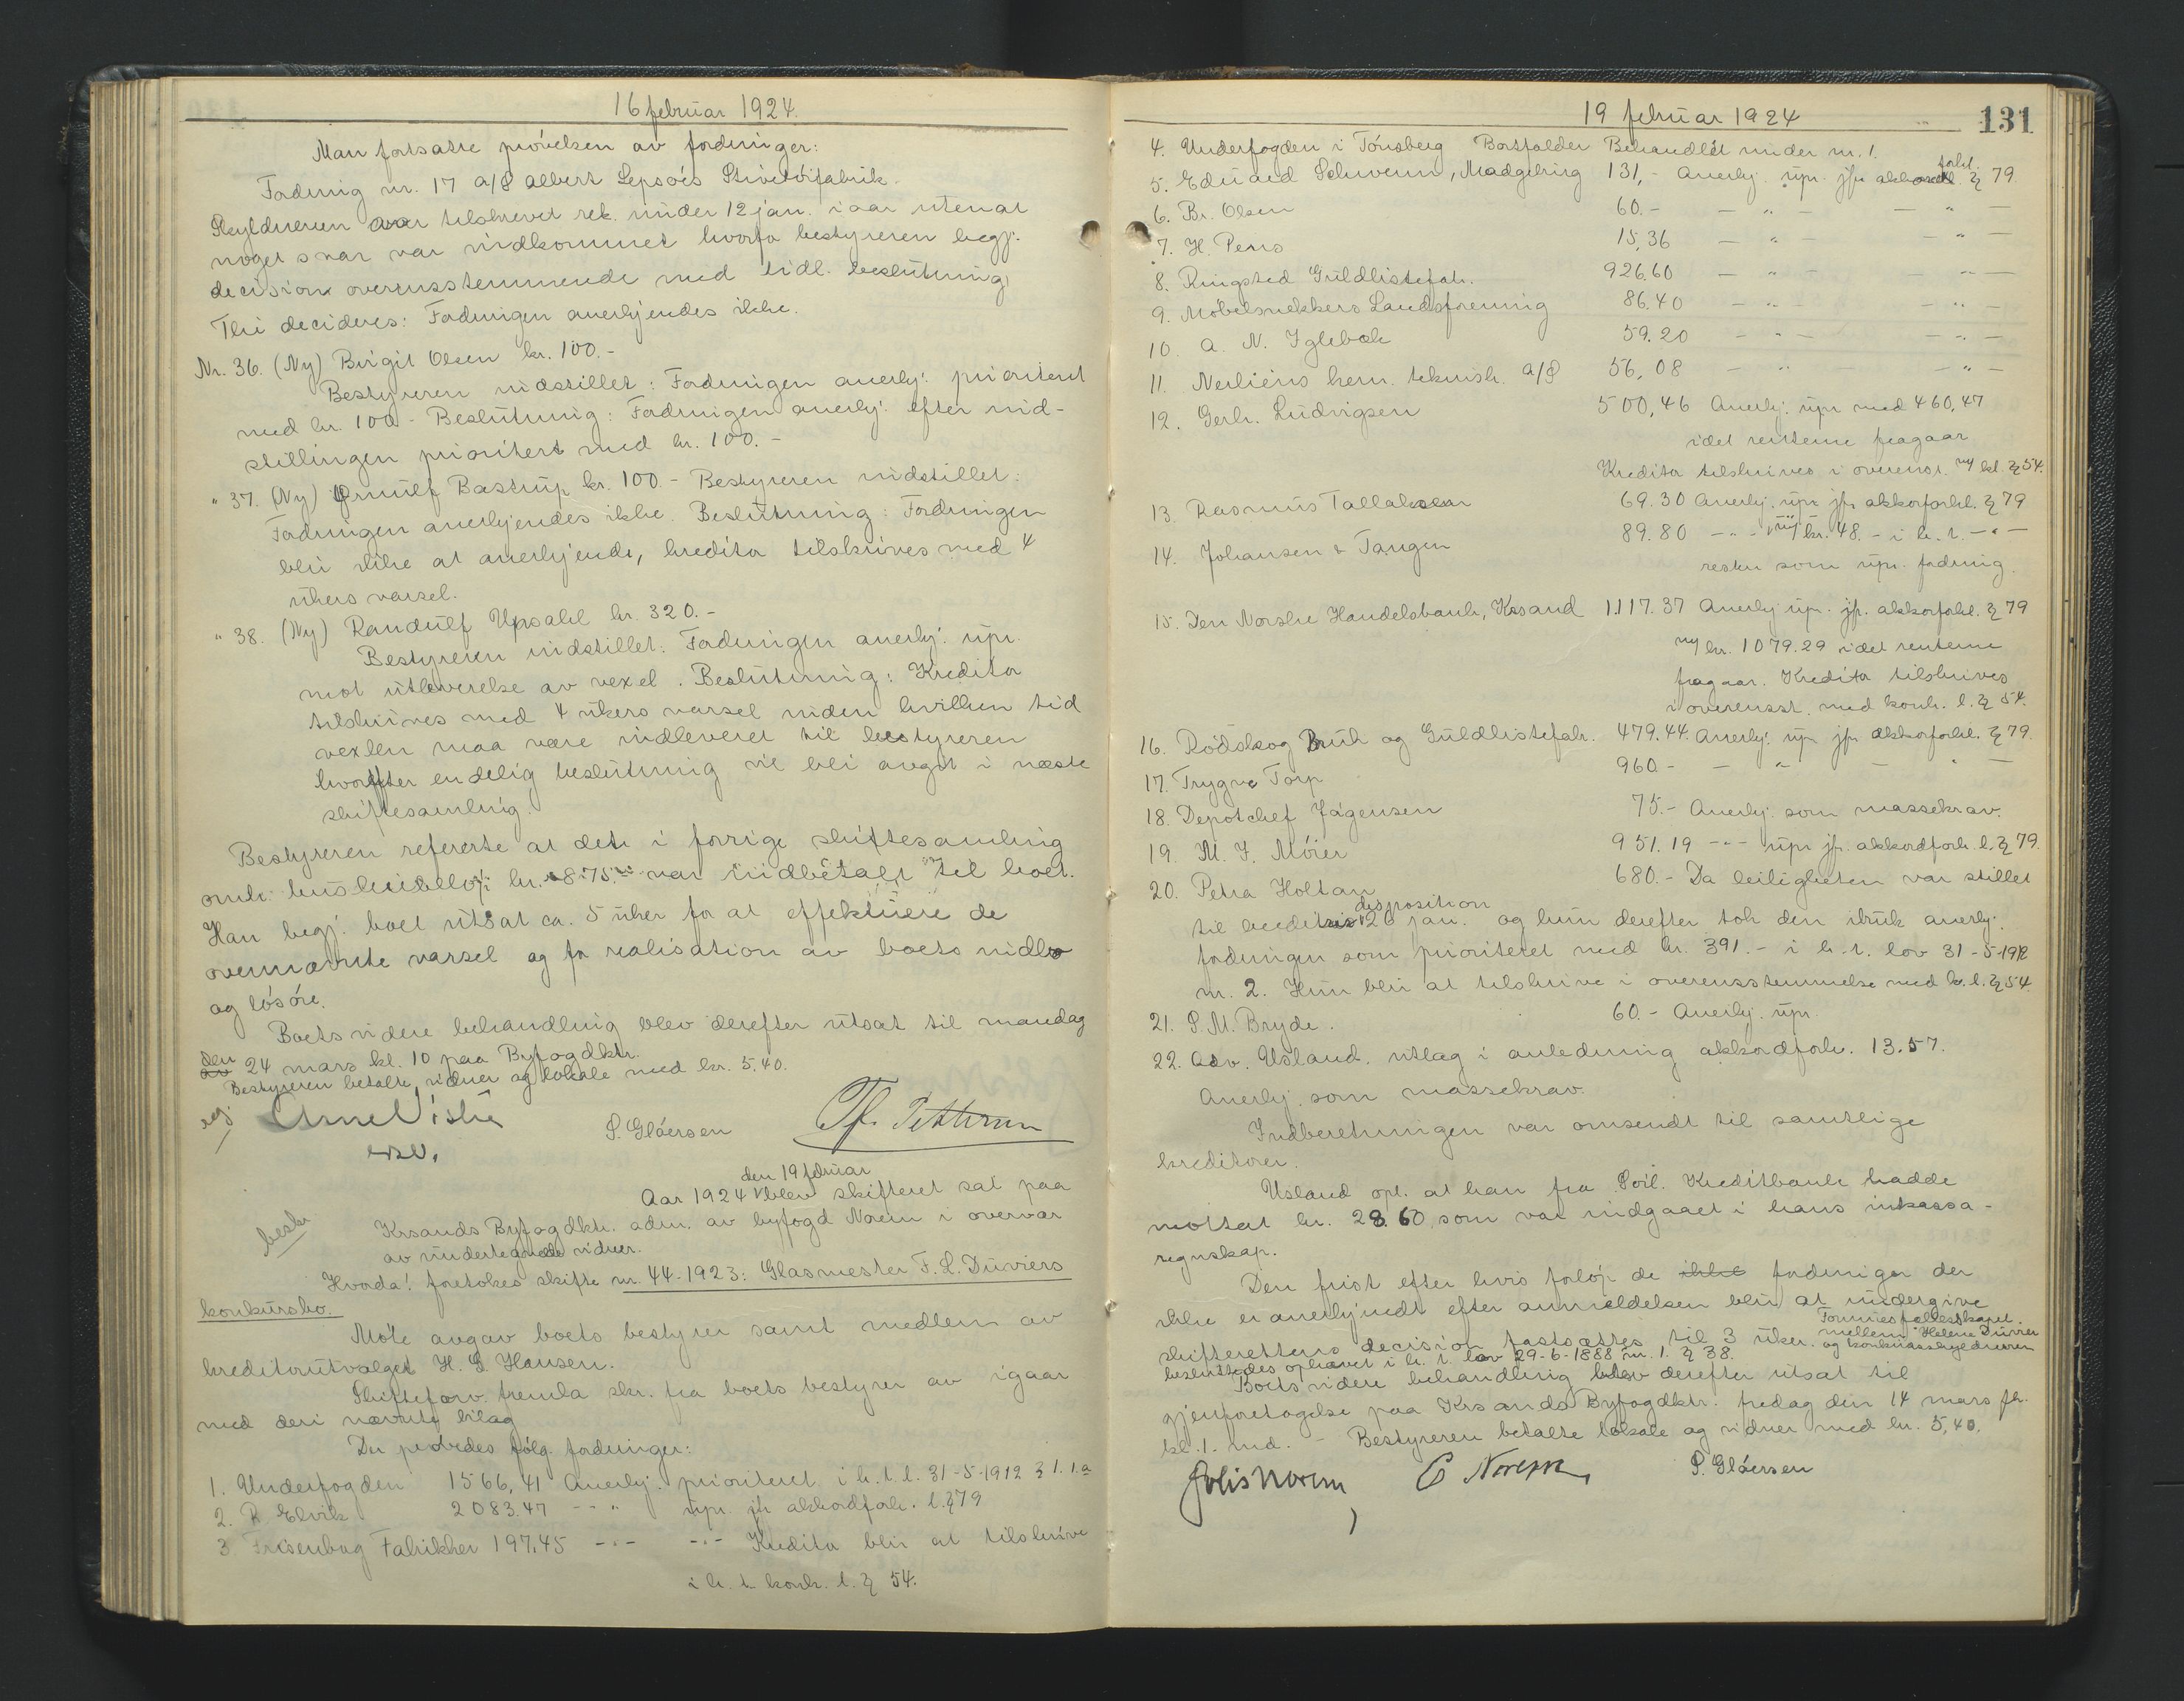 16 februar 1924.
Man fortsatte prøvelsen av fordringer:
Fordring nr. 17 A/S Albert Lepsøes Stivetøifabrik.
Skyldneren var tilskrevet rek. under 12 jan. i aar uten at
noget svar var indkommet hvorfor bestyreren begj.
decision overensstemmende med tidl. beslutning,
Thi decideres: Fordringen anerkjendes ikke.
Nr. 36. (Ny) Birgit Olsen kr. 100.-
Bestyreren indstillet: Fordringen anerkj. prioritert
med kr. 100 - Beslutning: Fordringen anerkj. efter ind-
stillingen prioritert med kr. 100.-
" 37. (Ny) Ørnulf Bastrup kr. 100.- Bestyreren indstillet:
Fordringen anerkjendes ikke. Beslutning: Fordringen
blir ikke at anerkjende, kreditor tilskrives med 4
ukers varsel.
" 38. (Ny) Randulf Upsahl kr. 320.-
Bestyreren indstillet: Fordringen anerkj. upr.
mot utleverelse av vexel. Beslutning: Kreditor
tilskrives med 4 ukers varsel inden hvilken tid
vexlen maa være indleveret til bestyreren
hvorefter endelig beslutning vil bli avgit i næste
skiftesamling.
Bestyreren refererte at det i forrige skiftesamling
omh. kr. 875.- var indbetalt til boet.
Han begj. boet utsat ca. 5 uker for at effektuere de
ovennævnte varsel og for realisation av boets indbo
og løsøre.
Boets videre behandling blev derefter utsat til mandag
den 24 mars kl. 10 paa Byfogdktr.
Bestyreren betalte vidner og lokale med kr. 5.40.
P. Gløersen
Th. Pettersen
den 19 februar
Aar 1924 blev skifteret sat paa
Krsands Byfogdktr. adm. av byfogd Norem i overvær
av undertegnede vidner.
Hvorda! foretokes skifte nr. 44-1923: Glasmester F. L. Düviers
konkursbo.
Møte avgav boets bestyrer samt medlem av
kreditorutvalget H. G. Hansen.
Skifteforv. fremla skr. fra boets bestyrer av igaar
med deri nævnte bilag
Der prøvedes følg. fordringer:
1. Underfogden 1566,41 Anerkj. prioriteret i h. t. l. 31-5-1912 § 1. 1.a
2. R. Elvik 2083.47 - " - upr. jfr akkordforh. l. § 79
3. Frisenborg Fabrikker 197.45 - " - - " - Kreditor blir at tilskrive
i h. t. konk. l. § 54.
19 februar 1924
131
4. Underfogden i Tønsberg Bortfalder Behandlet under nr. 1.
5. Eduard Schwenn, Madgeburg 131,- Anerkj. upr. jfr. akkord forh. § 79.
6. Br. Olsen 60.- - " - - " -
7. H. Pens 15,36 - " - - " -
8. Ringsted Guldlistefabr. 926.60 - " - - " -
9. Møbelsnekkers Landsforening 86.40 - " - - " -
10. A. N. Iglebæk 59.20 - " - - " -
11. Nerliens kem. teknisk. A/S 56,08 - " - - " -
12. Gerh. Ludvigsen 500,46 Anerkj. upr med 460,47
idet renterne fragaar
Kreditor tilskrives i overenst. m/ kl. § 54.
13. Rasmus Tallaksen 69.30 Anerkj. upr jfr akkorforhl. § 79
14. Johansen & Tangen 89.80 - " - m/ kr. 48.- i h. t. - " -
resten som upr. fordring.
15. Den Norske Handelsbank, Krsand 1117.37 Anerkj upr. jfr. akkorforhl. § 79
m/ kr. 1079.29 idet renterne
fragaar. Kreditor tilskrives
i overensst. med konk. l. § 54.
16. Rødskog Bruk og Guldlistefabr. 479.44. Anerkj. upr jfr akkorforhl. § 79.
17. Trygve Torp 960.- - " - - " -
18. Depotchef Jørgensen 75.- Anerkj. som massekrav.
19. M. J. Møier 951.19 - " - upr jfr. akkordforh. l. § 79.
20. Petra Holtan 680.- Da leiligheten var stillet
disposition
til 26 jan. og hun derefter tok den ibruk anerkj.
fordringen som prioriteret med kr. 391.- i h. t. lov 31-5-1912
nr. 2. Hun blir at tilskrive i overensstemmelse med k. l. § 54.
21. S. M. Bryde. 60.- Anerkj. upr.
22. Adv. Usland. utlæg i anledning akkordforh. 13.57.
Anerkj. som massekrav.
Indberetningen var omsendt til samtlige
kreditorer.
Usland opl. at han fra Soil. Kreditbank hadde
mottat kr. 28.60 som var indgaaet i hans inkasso-
regnskap.
Den frist efter hvis forløp de ikke fordringer der
ikke er anerkjendt efter anmeldelsen blir at undergive
skifterettens decision fastsættes til 3 uker. Formuesfællesskapet
mellem Helene Düvier
og konkursskyldneren
besluttedes ophævet i h. t. lov 29-6-1888 nr. 1. § 38.
Boets videre behandling blev derefter utsat til
gjenforetagelse paa Krsands Byfogdktr. fredag den 14 mars fk.
kl. 1. md. - Bestyreren betalte lokale og vidner med kr. 5,40.
Johs Norem
E Norem
P. Gløersen